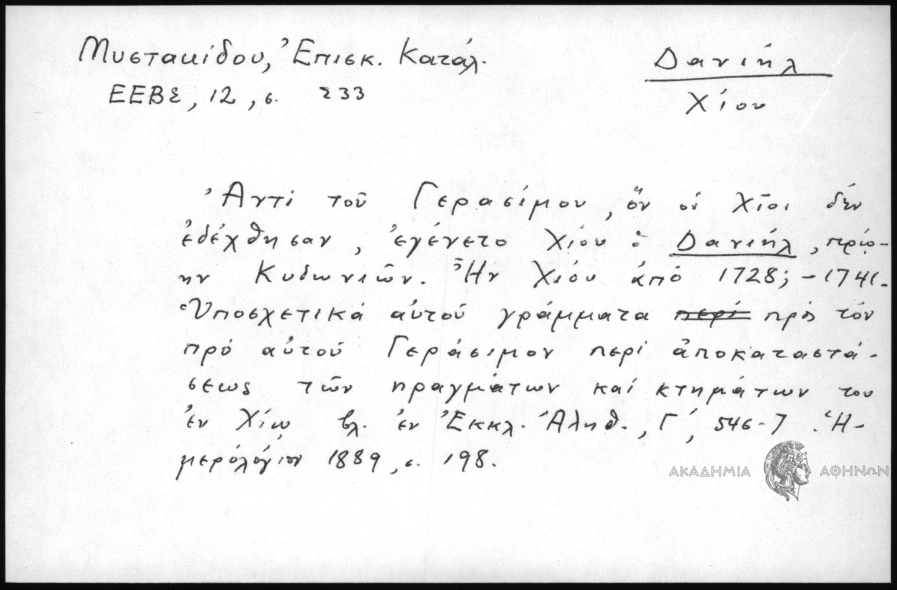 Μυστακίδου, Ἐπισκ. Κατάλ.
ΕΕΒΣ, 12, σ. 233
Δανιήλ
Χίου
Ἀντί τοῦ Γερασίμου, ὅν οἱ Χῖοι δέν
ἐδέχθησαν, ἐγένετο Χίου ὁ Δανιήλ, πρώ-
ην Κυδωνιῶν. Ἦν Χίου ἀπό 1728; - 1741.
Ὑποσχετικά αὐτοῦ γράμματα περί πρός τόν
πρό αὐτοῦ Γεράσιμον περί ἀποκαταστά-
σεως τῶν πραγμάτων καί κτημάτων του
ἐν Χίῳ βλ. ἐν Ἐκκλ. Ἀληθ., Γ΄, 546-7. Ἡ-
μερολόγιον 1889, σ. 198.
ΑΚΑΔΗΜΙΑ ΑΘΗΝΩΝ